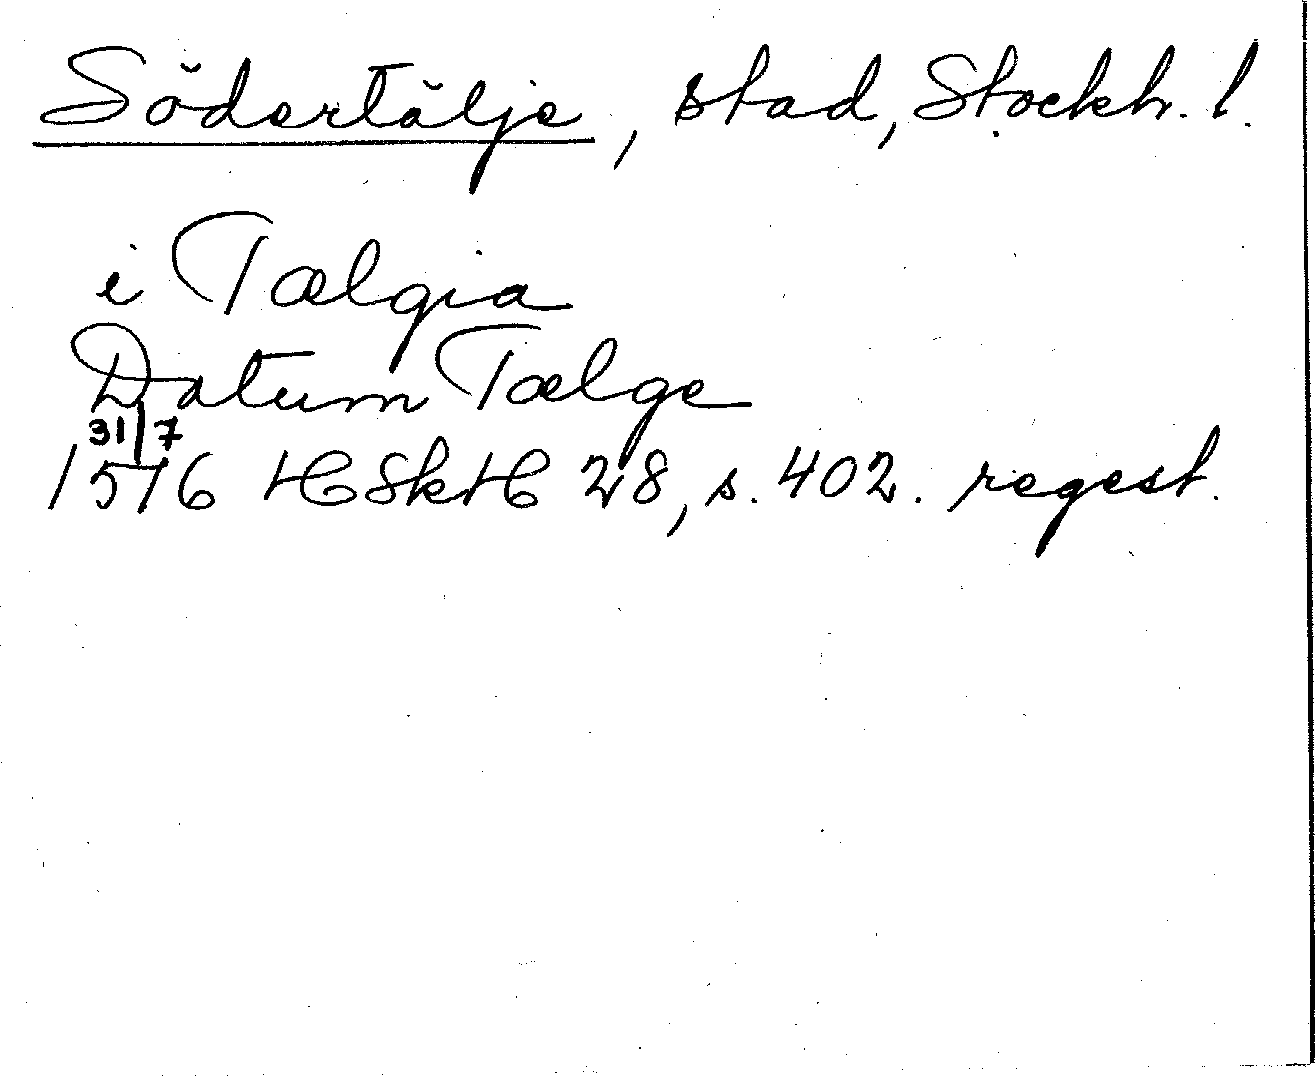 Södertälje, stad, Stockh. l.
i Tælgia
Datum Tælge
31/7
1576 HSkH 28, s. 402. regest.